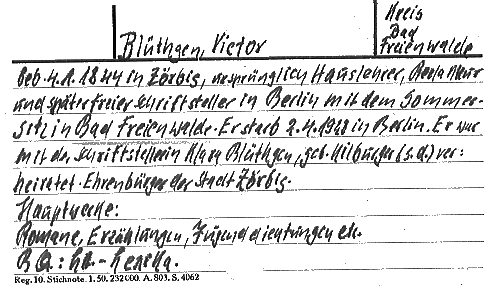 Kreis
Bad
Freienwalde
Blüthgen, Victor
Geb. 4.1.1844 in Zörbig, ursprünglich Hauslehrer, Redakteur
und später freier Schriftsteller in Berlin mit dem Sommer-
sitz in Bad Freienwalde. Er starb 2.4.1920 in Berlin. Er war
mit der Schriftstellerin Klara Blüthgen, geb. Kilburger (s.d.) ver:
heiratet. Ehrenbürger der Stadt Zörbig.
Hauptwerke:
Romane, Erzählungen, Jugenddichtungen etc.
Reg. 10. Stichnote. 1. 50. 232000. A. 803. S. 4062